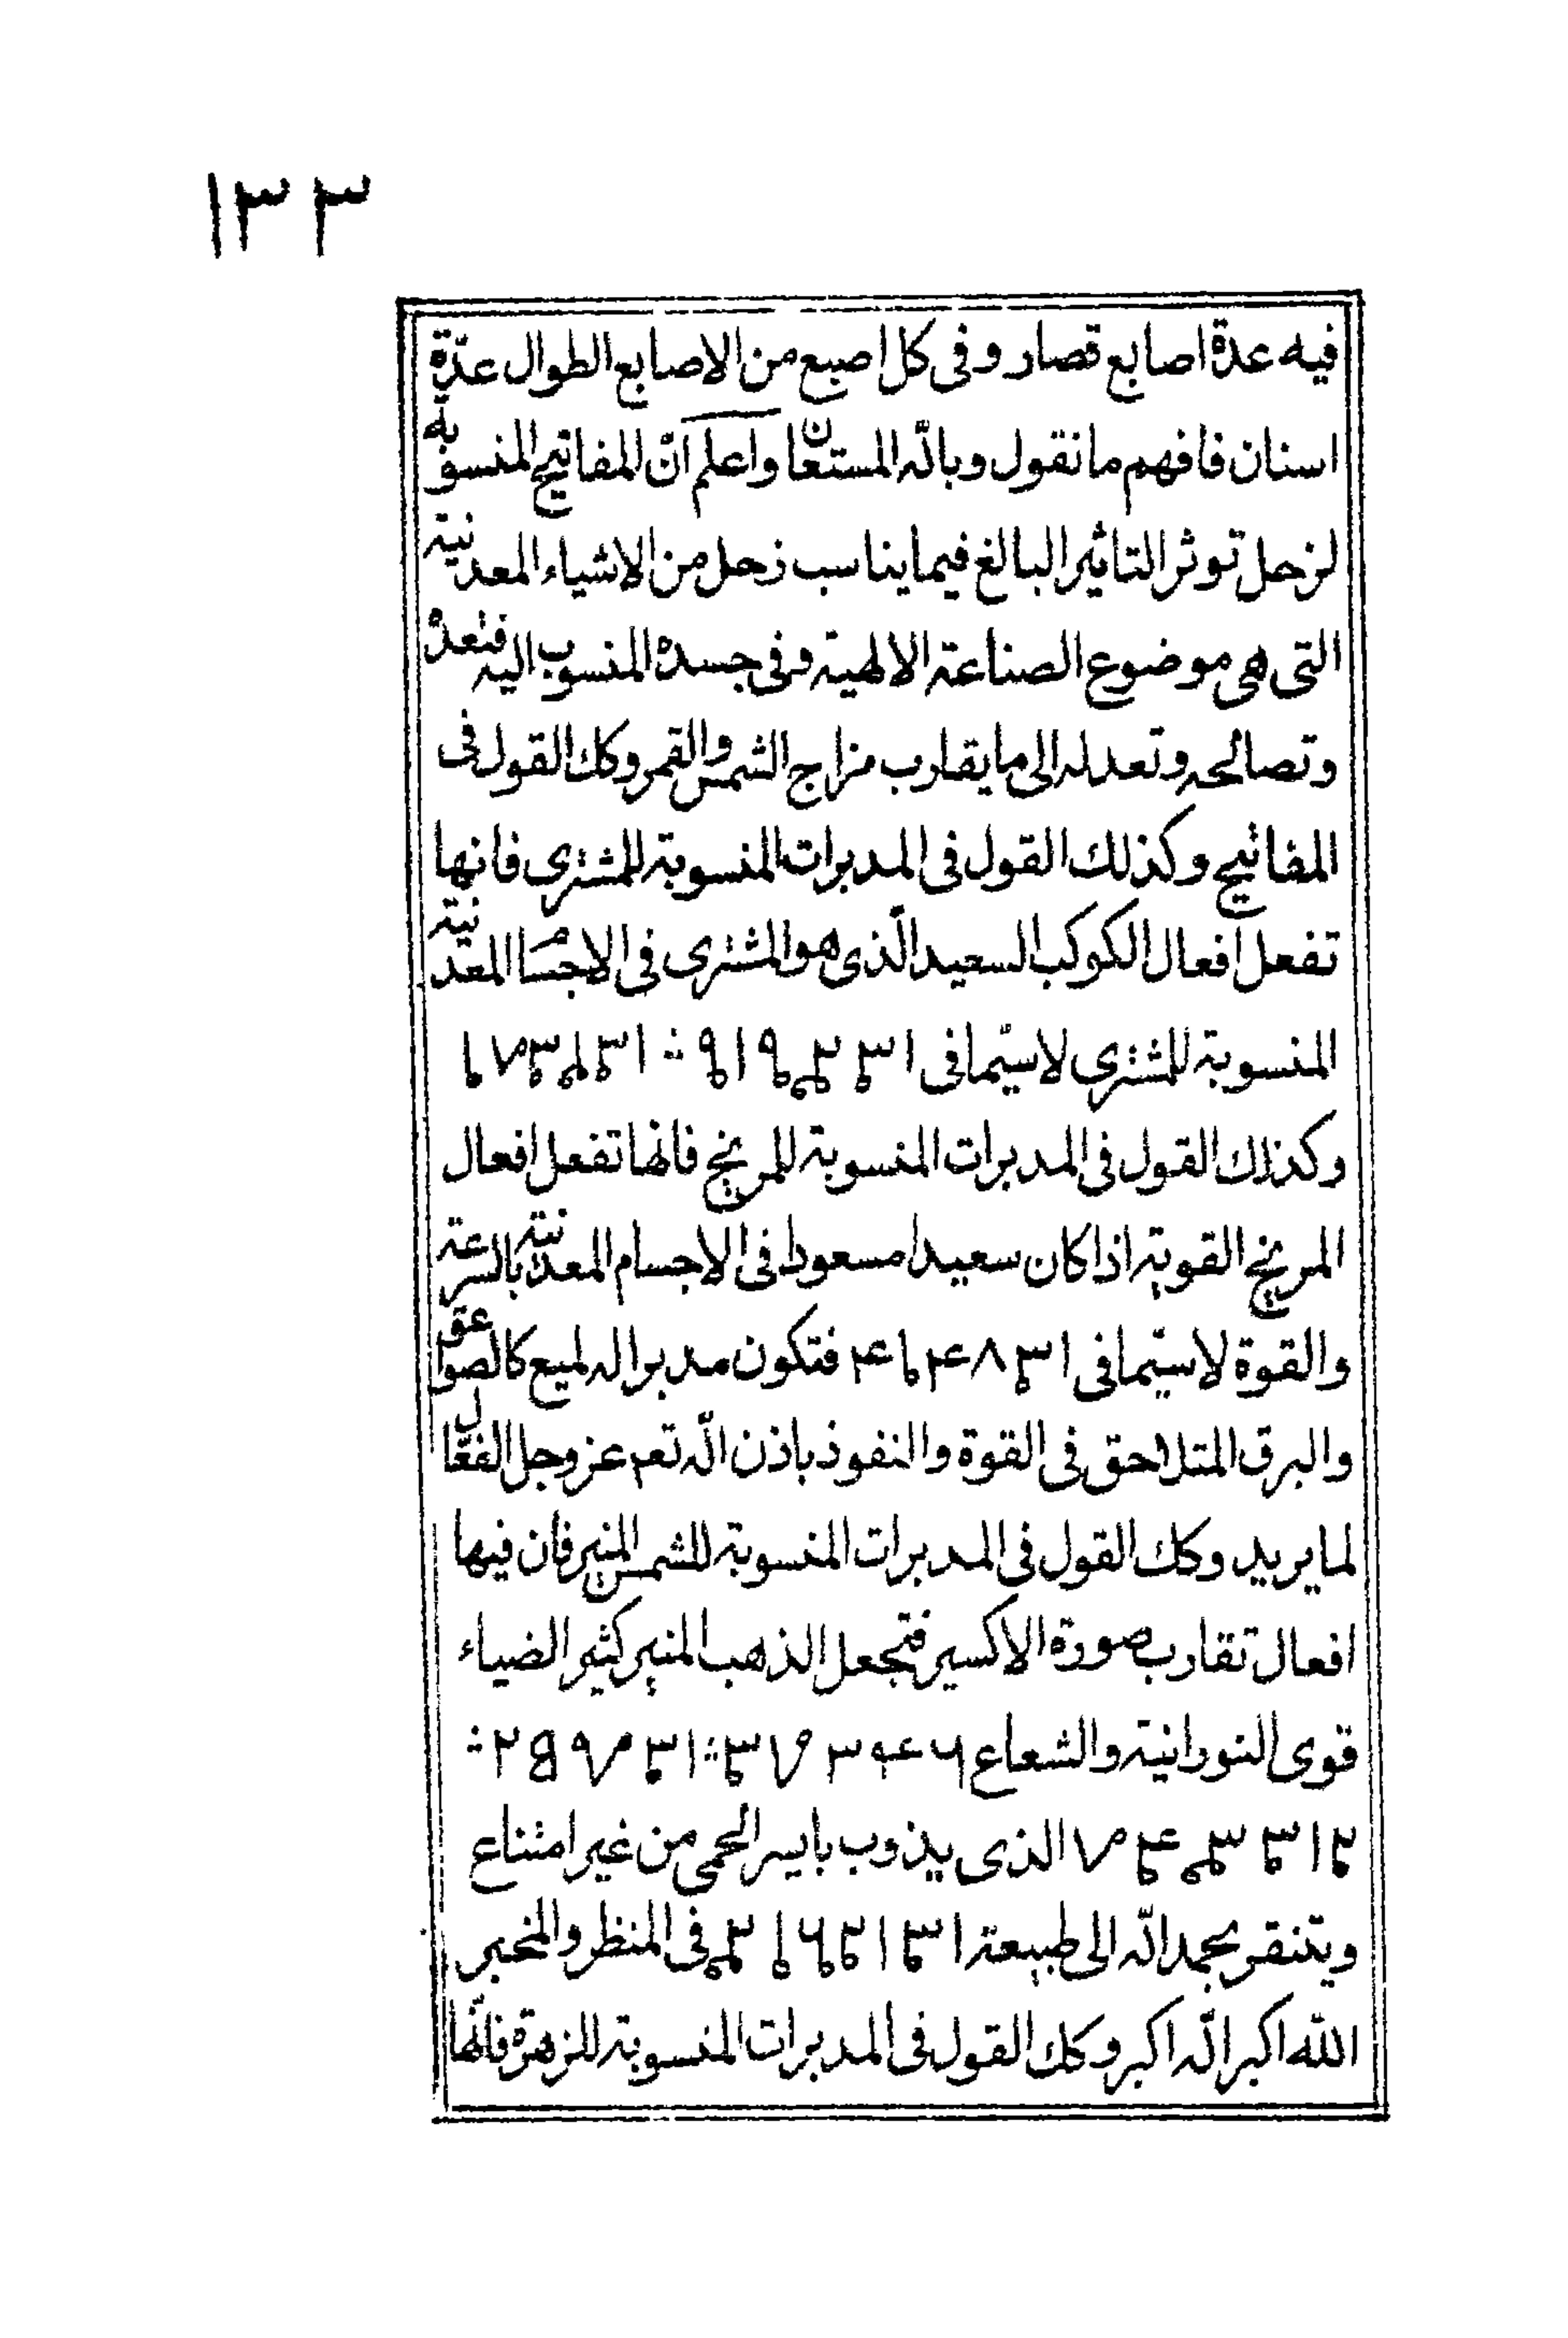 ١٣٣
فيه عدة اصابع قصار وفى كل اصبع من الاصابع الطوال عدّة
اسنان فافهم ما نقول وباللّه المستعان واعلم انّ المفاتيح المنسوبة
لزحل توثر التاثير البالغ فيما يناسب زحل من الاشياء المعدنية
التى هى موضوع الصناعة الالهية وفى جسده المنسوب اليه فتعده
وتصالحه وتعدله الى ما يقارب مزاج الشمس والقمر وكك القول فى
المفاتيح وكذلك القول فى المدبرات المنسوبة للمشترى فانها
تفعل افعال الكوكب السعيد الّذى هو المشترى فى الاجسام المعدنية
المنسوبة للمشترى لاسيّما فى
وكذلك القول فى المدبرات المنسوبة للمريخ فانها تفعل افعال
المريخ القوية اذا كان سعيدا مسعودا فى الاجسام المعدنية بالسرعة
والقوة لاسيّما فى فتكون مدبرا له لميع كالصواعق
والبرق المتلاحق فى القوة والنفوذ باذن اللّه تعم عز وجل الفعّال
لما يريد وكك القول فى المدبرات المنسوبة للشمس المنير فان فيها
افعال تقارب صورة الاكسير فتجعل الذهب المنير كثير الضياء
قوى النورانية والشعاع
الذى يذوب بايسر الحمى من غير امتناع
ويتنقر بحمد اللّه الى طبيعة فى المنظر والمخبر
اللّه اكبر اللّه اكبر وكك القول فى المدبرات المنسوبة للزهرة فانّها